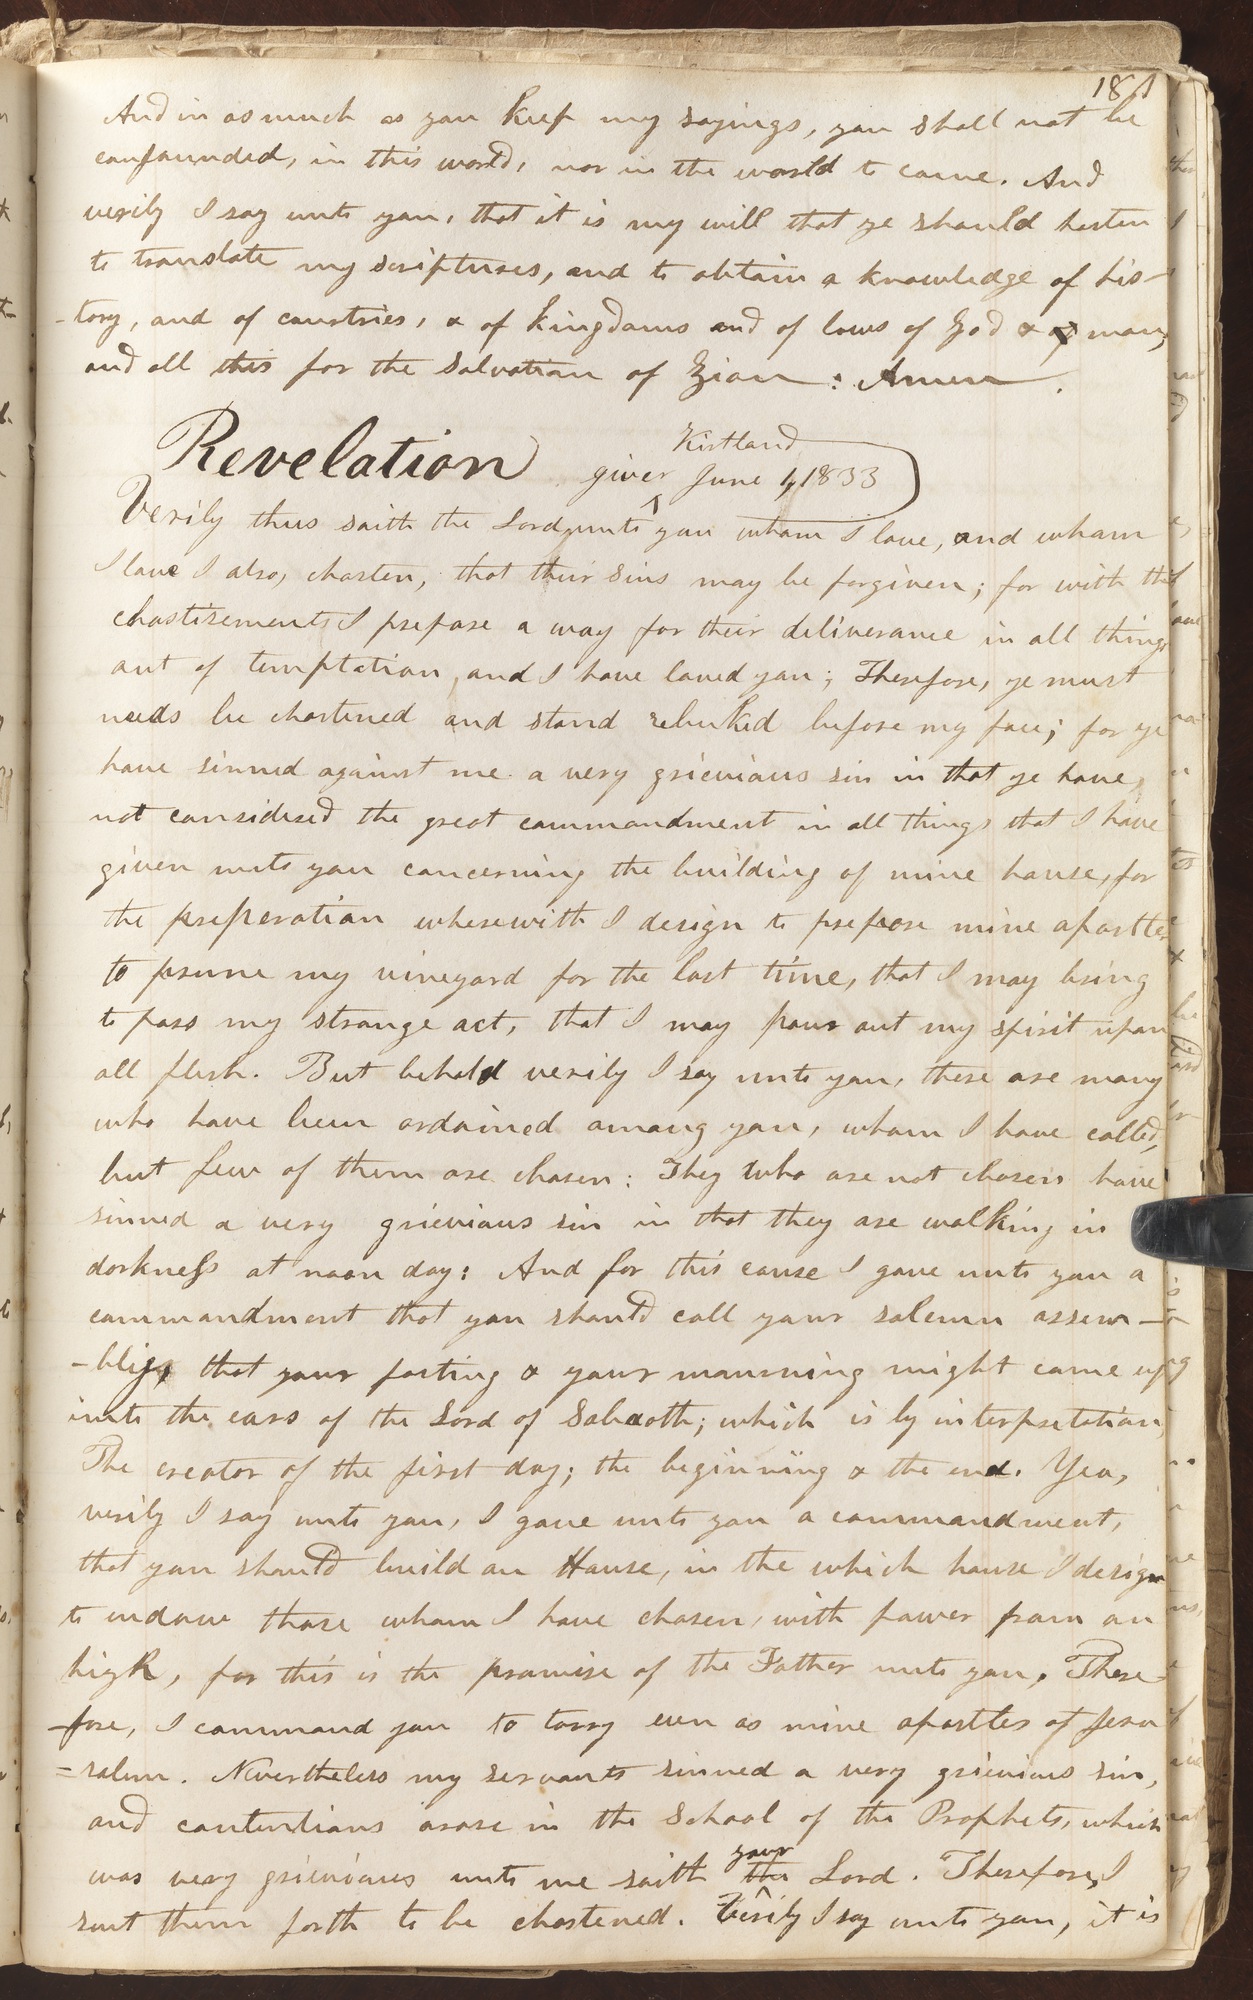 181
And in as much as you keep my sayings, you shall not be
confounded, in this world, nor in the world to come. And
verily I say unto you, that it is my will that ye should hasten
to translate my scriptures, and to obtain a knowledge of his-
-tory, and of countries, & of kingdoms and of laws of God & man,
and all this for the salvation of Zion: Amen.
Kirtland
Revelation given June 1, 1833
Verily thus saith the Lord, unto you whom I love, and whom
I love I also, chasten, that their sins may be forgiven; for with the
chastisements I prepare a way for their deliverance in all things
out of temptation, and I have loved you; Therefore, ye must
needs be chastened and stand rebuked before my face; for ye
have sinned against me a very grievious sin in that ye have,
not considered the great commandment in all things that I have
given unto you concerning the building of mine house, for
the preperation wherewith I design to prepare mine apostles
to prune my vineyard for the last time, that I may bring
to pass my strange act, that I may pour out my spirit upon
all flesh. But behold verily I say unto you, there are many
who have been ordained among you, whom I have called,
but few of them are chosen: They who are not chosen have
sinned a very grievious sin in that they are walking in
darkness at noon day: And for this cause I gave unto you a
commandment that you should call your solemn assem-
-bly, that your fasting & your mourning might come up
into the ears of the Lord of Sabaoth; which is by interpretation,
The creator of the first day; the beginning & the end. Yea,
verily I say unto you, I gave unto you a commandment,
that you should build an House, in the which house I design
to endow those whom I have chosen, with power from on
high, for this is the promise of the Father unto you. There-
-fore, I command you to tarry even as mine apostles at Jeru
=salem. Nevertheless my servants sinned a very grievious sin,
and contentions arose in the School of the Prophets, which
your
was very grievious unto me saith the Lord. Therefore, I
sent them forth to be chastened. Verily I say unto you, it is